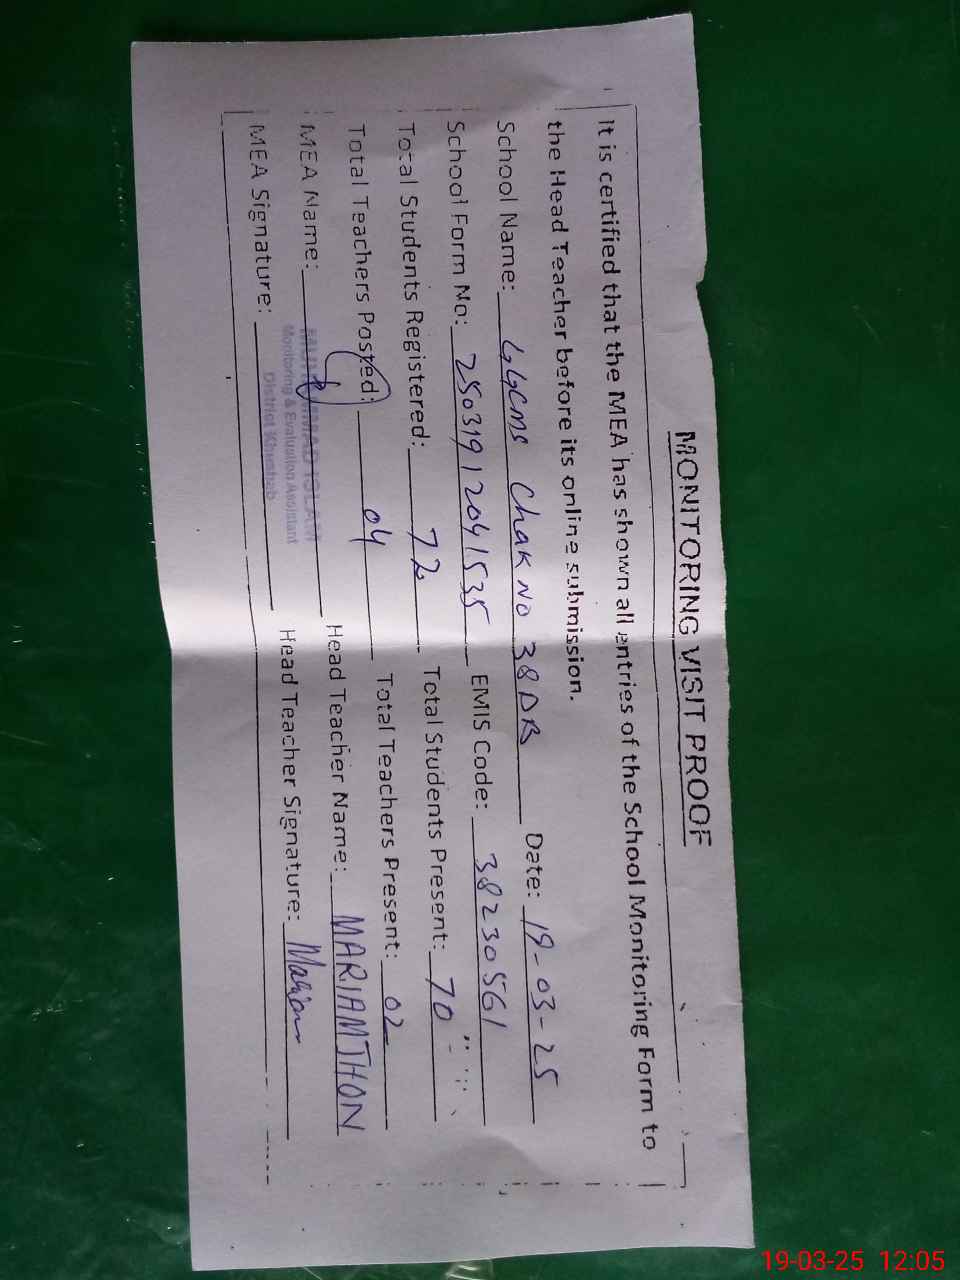 MONITORING VISIT PROOF
It is certified that the MEA has shown all entries of the School Monitoring Form to
the Head Teacher before its online submission.
School Name: GGCMS Chak No 38DB Date: 19-03-25
School Form No: 25031912041535 EMIS Code: 38230561
Total Students Registered: 72 Total Students Present: 70
Total Teachers Posted: 04 Total Teachers Present: 02
MEA Name: MUHAMMAD ISLAM Head Teacher Name: MARIAM JHON
Monitoring & Evaluation Assistant
District Khushab
MEA Signature: Head Teacher Signature: Mariam
19-03-25 12:05